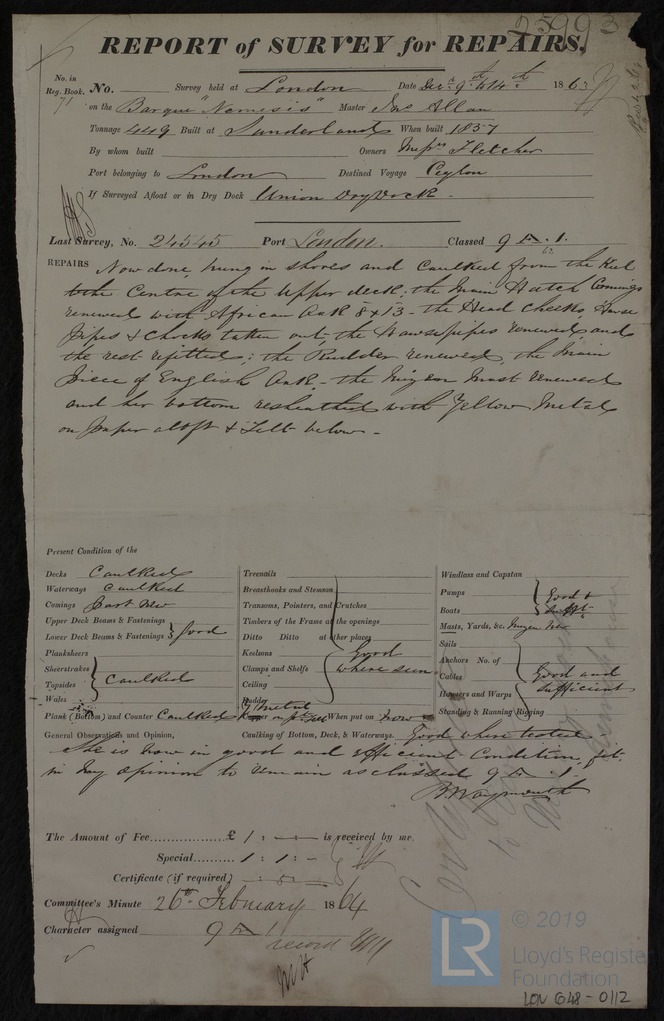 25993
REPORT of SURVEY for REPAIRS.
No. in Reg. Book. No. Survey held at London Date Decr. 9th & 14th 1863
71 on the Barque "Nemesis" Master Jas Allan
Tonnage 449 Built at Sunderland When built 1857
By whom built Owners Messrs Fletcher
Port belonging to London Destined Voyage Ceylon
If Surveyed Afloat or in Dry Dock Union Dry Dock
Last Survey, No. 24545 Port London. Classed 9 A. 1.
REPAIRS Now done, hung in shores and caulked from the Keel
to the Centre of the Upper deck, the Main Hatch Comings
renewed with African Oak 8 x 13 - the Head Cheeks, Hawse
Pipes & Chocks taken out, the Hawsepipes renewed and
the rest refitted; the Rudder renewed, the Main
Piece of English Oak - the Mizen Mast renewed
and her bottom resheathed with Yellow Metal
on paper aloft & Felt below -
Present Condition of the
Decks Caulked
Waterways Caulked
Comings Part New
Upper Deck Beams & Fastenings
Lower Deck Beams & Fastenings } Good
Planksheers
Sheerstrakes
Topsides } Caulked
Wales
Plank (Bottom) and Counter Caulked
Treenails
Breasthooks and Stemson
Transoms, Pointers, and Crutches
Timbers of the Frame at the openings
Ditto Ditto at other places
Keelsons Good
Clamps and Shelfs where seen
Ceiling
Rudder
Y Metal
When put on now
Windlass and Capstan
Pumps } Good &
Boats
Masts, Yards, &c. Mizen New
Sails
Anchors No. of
Cables } Good and
Hawsers and Warps Sufficient
Standing & Running Rigging
General Observations and Opinion, Caulking of Bottom, Deck, & Waterways. Good where tested
She is now in good and efficient Condition, fit
in my opinion to remain as classed 9 A. 1.
B Waymouth
The Amount of Fee £ 1 : - is received by me.
Special 1 : 1 : -
Certificate (if required) - : 5 -
Committee's Minute 26th February 1864
Character assigned 9 A 1
record
© 2019
LR Lloyd's Register
Foundation
LON 648-0112